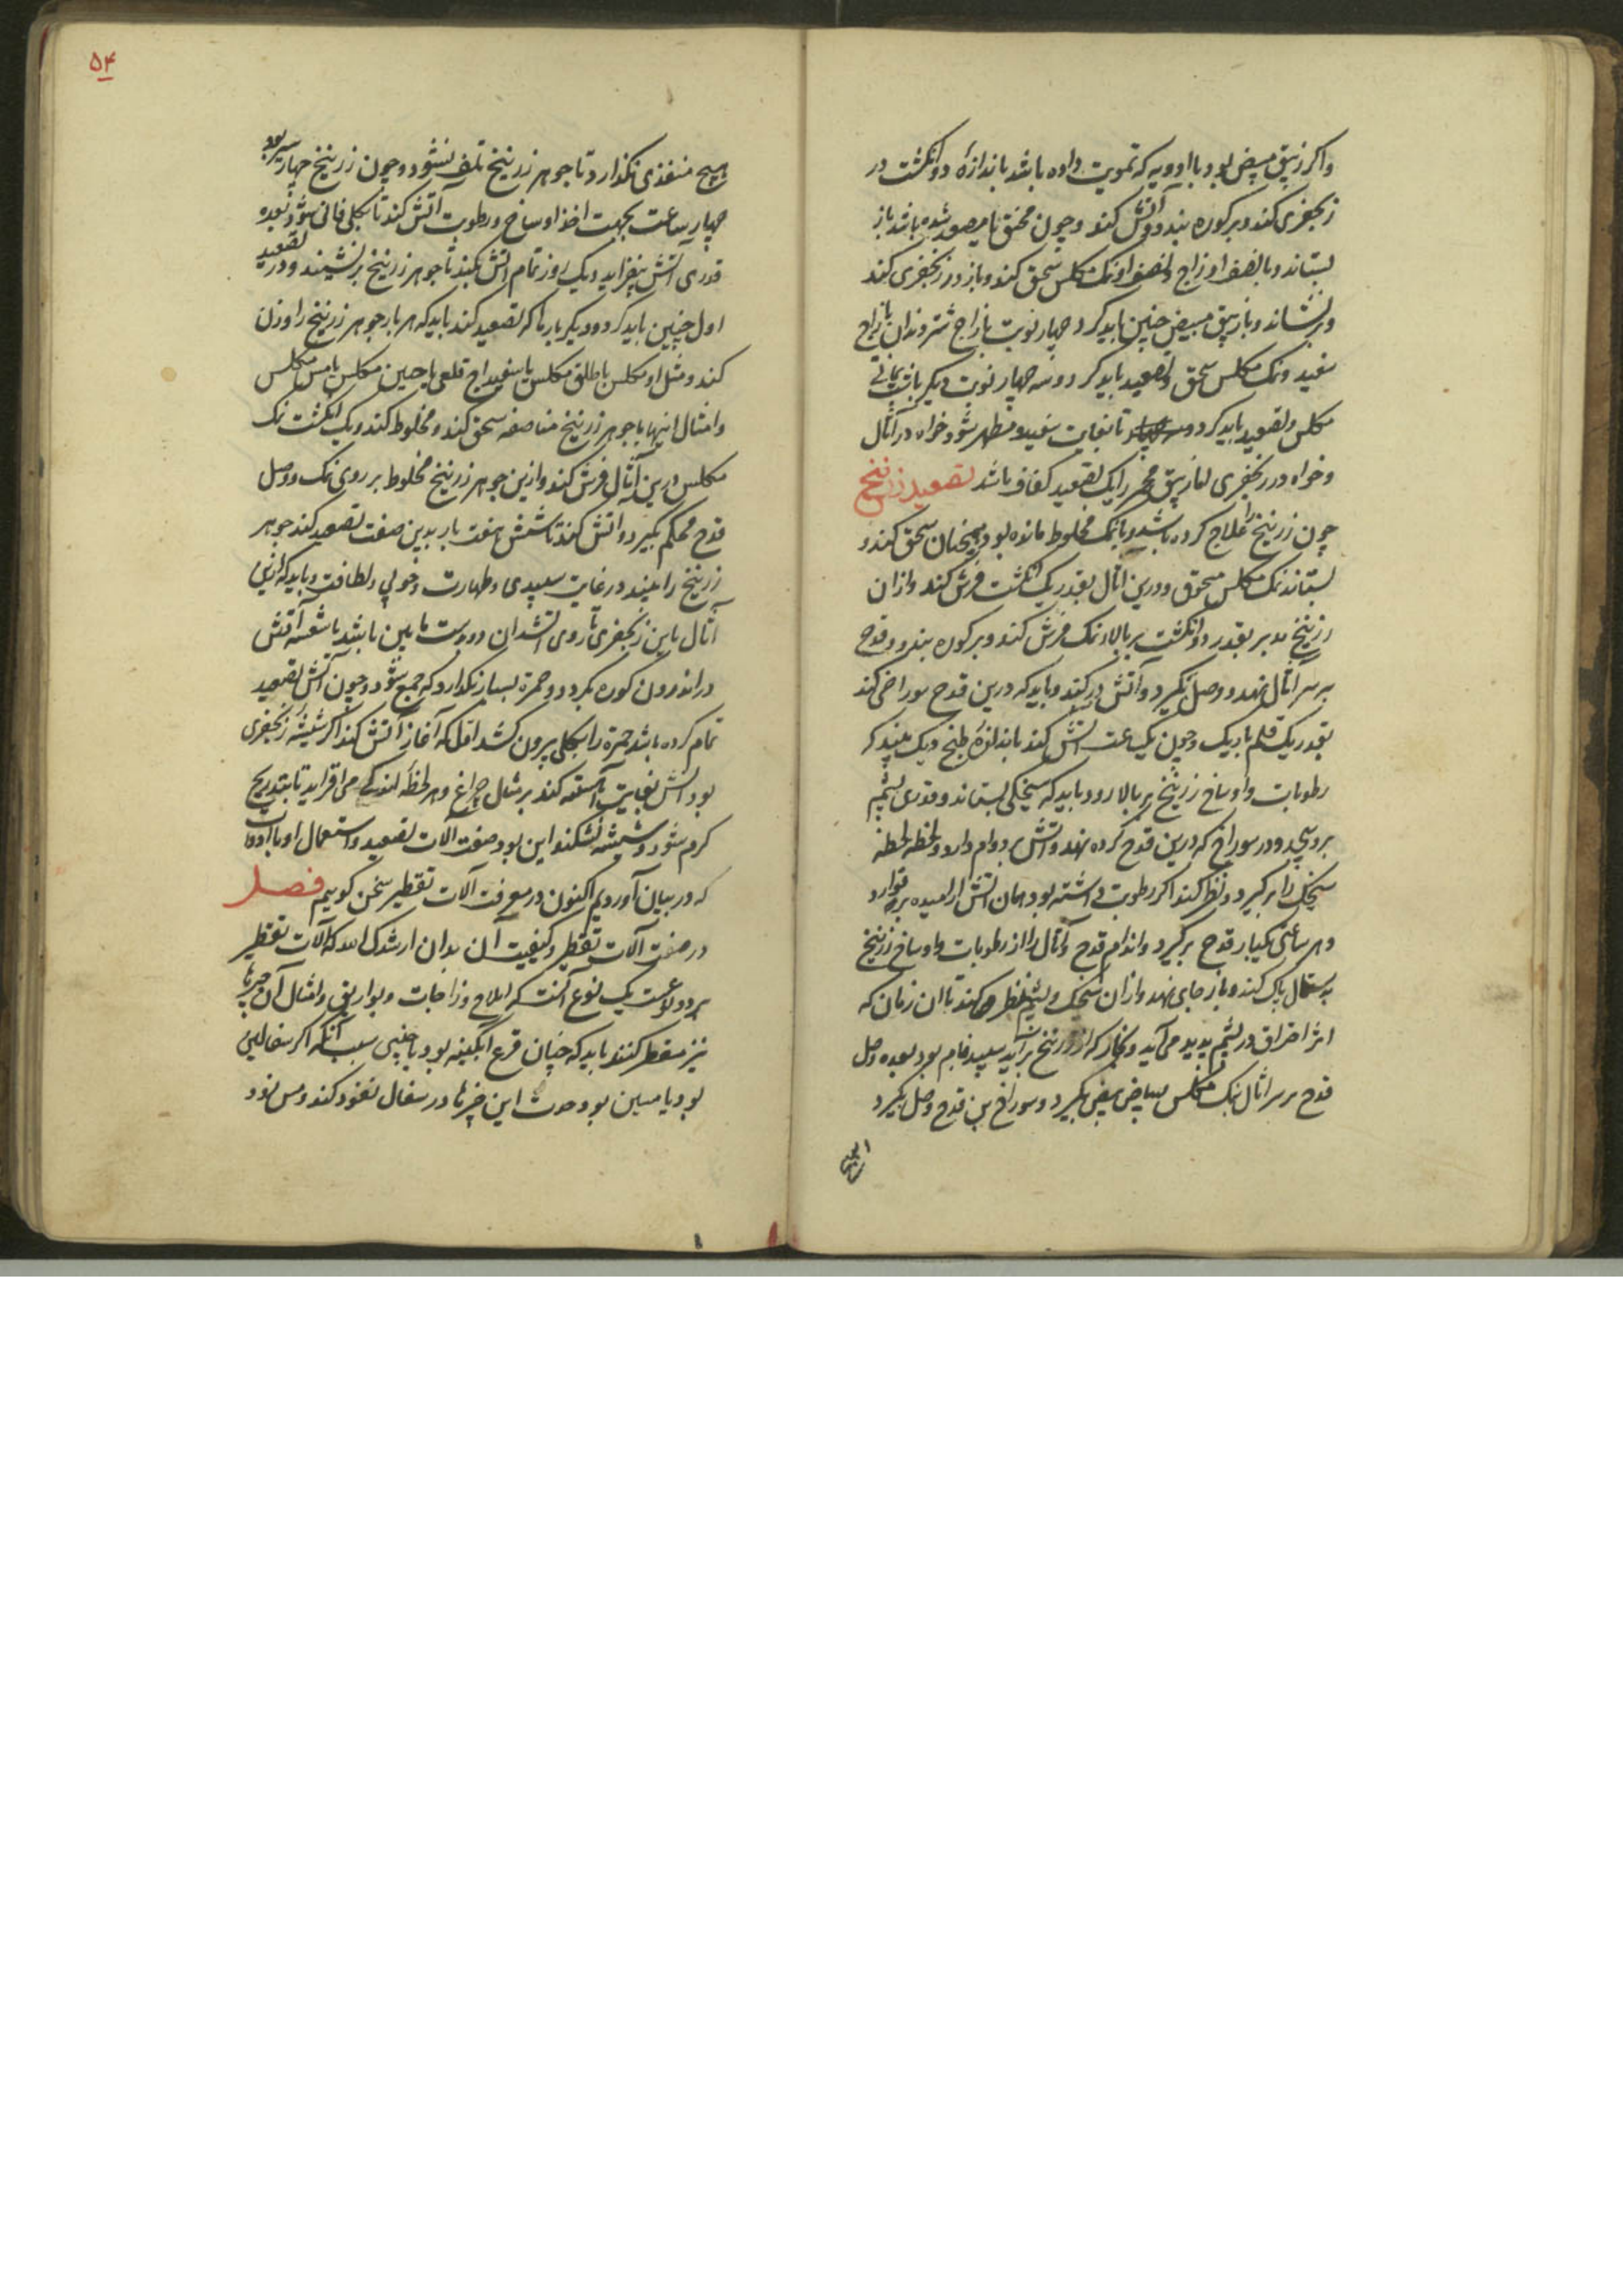 واکر زیبق مبیض بود با ادویه که تمویت داده باشد باندازهٔ دو انکشت در
زنجفری کند و بر کوره نهد و آتش کند و چون مختق تا مصعد شده باشد باز
بستاند و با نصف او زاج و نصف او نمک مکلس سحق کند و باز در زنجفری کند
و برنشاند و با زیبق مبیض چنین باید کرد چهار نوبت با زاج شتر دندان با زاج
سفید و نمک مکلس سحق و تصعید باید کرد و سه چهار نوبت دیکر با
مکلس و تصعید باید کرد تا بغایت سفید و مطهر شود خواه در آثال
و خواه در زنجفری اما زیبق محمر را یک تصعید کفاف باشد تصعید زرنیخ
چون زرنیخ را علاج کرده باشد و با نمک مخلوط مانده بود همچنان سحق کند و
بستاند نمک مکلس مسحوق و در بن اثال بقدر یک انکشت فرش کند و از ان
زرنیخ مدبر بقدر دو انکشت بر بالاء نمک فرش کند و بر کوره نهد و قدح
بر سر اثال نهد و وصل بگیرد و آتش در کند و باید که در بن قدح سوراخی کند
بقدر یک قلم باریک و چون یک ساعت آتش کند باندازهٔ طبخ دیک ببیند که
رطوبات و اوساخ زرنیخ بر بالا رود و باید که سیخکی بستاند و قدری پشم
برو پیچد و در سوراخ که در بن قدح کرده نهد و آتش بر دوام دارد و لحظه لحظه
سیخک را بر کیرد و نظر کند اکر رطوبت داشته بود همان آتش را برقرار دارد
و هر ساعتی یکبار قدح بر کیرد و اندام قدح و آثال را از رطوبات و اوساخ زرنیخ
بدستمال پاک کند و باز جای نهد و از ان سیخک و پشم نظر میکند تا ان زمان که
اثر احتراق در پشم پدید می آید و بخار که از زرنیخ بر آید سپید فام بود بعده وصل
قدح بر سر اثال بنمک مکلس و بیاض بیض بگیرد و سوراخ بن قدح وصل بگیرد
۵۴
هیچ منفذی نگذارد تا جوهر زرنیخ تلف نشود و چون زرنیخ چهار سیر بود
چهار ساعت بجهت اخذ اوساخ و رطوبت آتش کند تا بکلی فانی شود بعده
قدری آتش بیفزاید و یک روز تمام آتش کند تا جوهر زرنیخ برنشیند و در تصعید
اول چنین باید کرد و دیکر بار تا که تصعید کند باید که هر بار جوهر زرنیخ را وزن
کند و مثل او مکلس یا طلق مکلس یا سفیداج قلعی یا جبسین مکلس یا مس مکلس
و امثال اینها با جوهر زرنیخ مناصفه سحق کند و مخلوط کند و یک انکشت نمک
مکلس در بن آثال فرش کند و ازین جوهر زرنیخ مخلوط بر روی نمک و وصل
قدح محکم بگیرد و آتش کند تا شش هفت بار بدین صفت تصعید کند جوهر
زرنیخ را ببیند در غایت سپیدی و طهارت و خوبی و لطافت و باید که از بن
آثال یا بن زنجفری تا روی آتشدان دو بدست مابین باشد تا شعشهٔ آتش
در اندرون کوره بگردد و جمره بسیار نگذارد که جمع شود و چون آتش تصعید
تمام کرده باشد جمره را بکلی بیرون کشد اول که آغاز آتش کند اکر شیشهٔ زنجفری
بود آتش بغایت آهسته کند بر مثال چراغ و هر لحظه اندکی می افزاید تا بتدریج
کرم شود و شیشه نشکند این بود صفت آلات تصعید و استعمال او با ادوات
که در بیان آوردیم اکنون در معرفت آلات تقطیر سخن کوییم فصل
در صفت آلات تقطیر و کیفیت آن بدان ارشدک الله که آلات تقطیر
بر دو نوعست یک نوع آنست که املاح و زاجات و بوارق و امثال آن چیزها
نیز مقطر کنند باید که چنان قرع ابگینه بود یا چینی سبب آنکه اکر سفالین
بود یا مسین بود حدت این چیزها در سفال نفوذ کند و مس بود